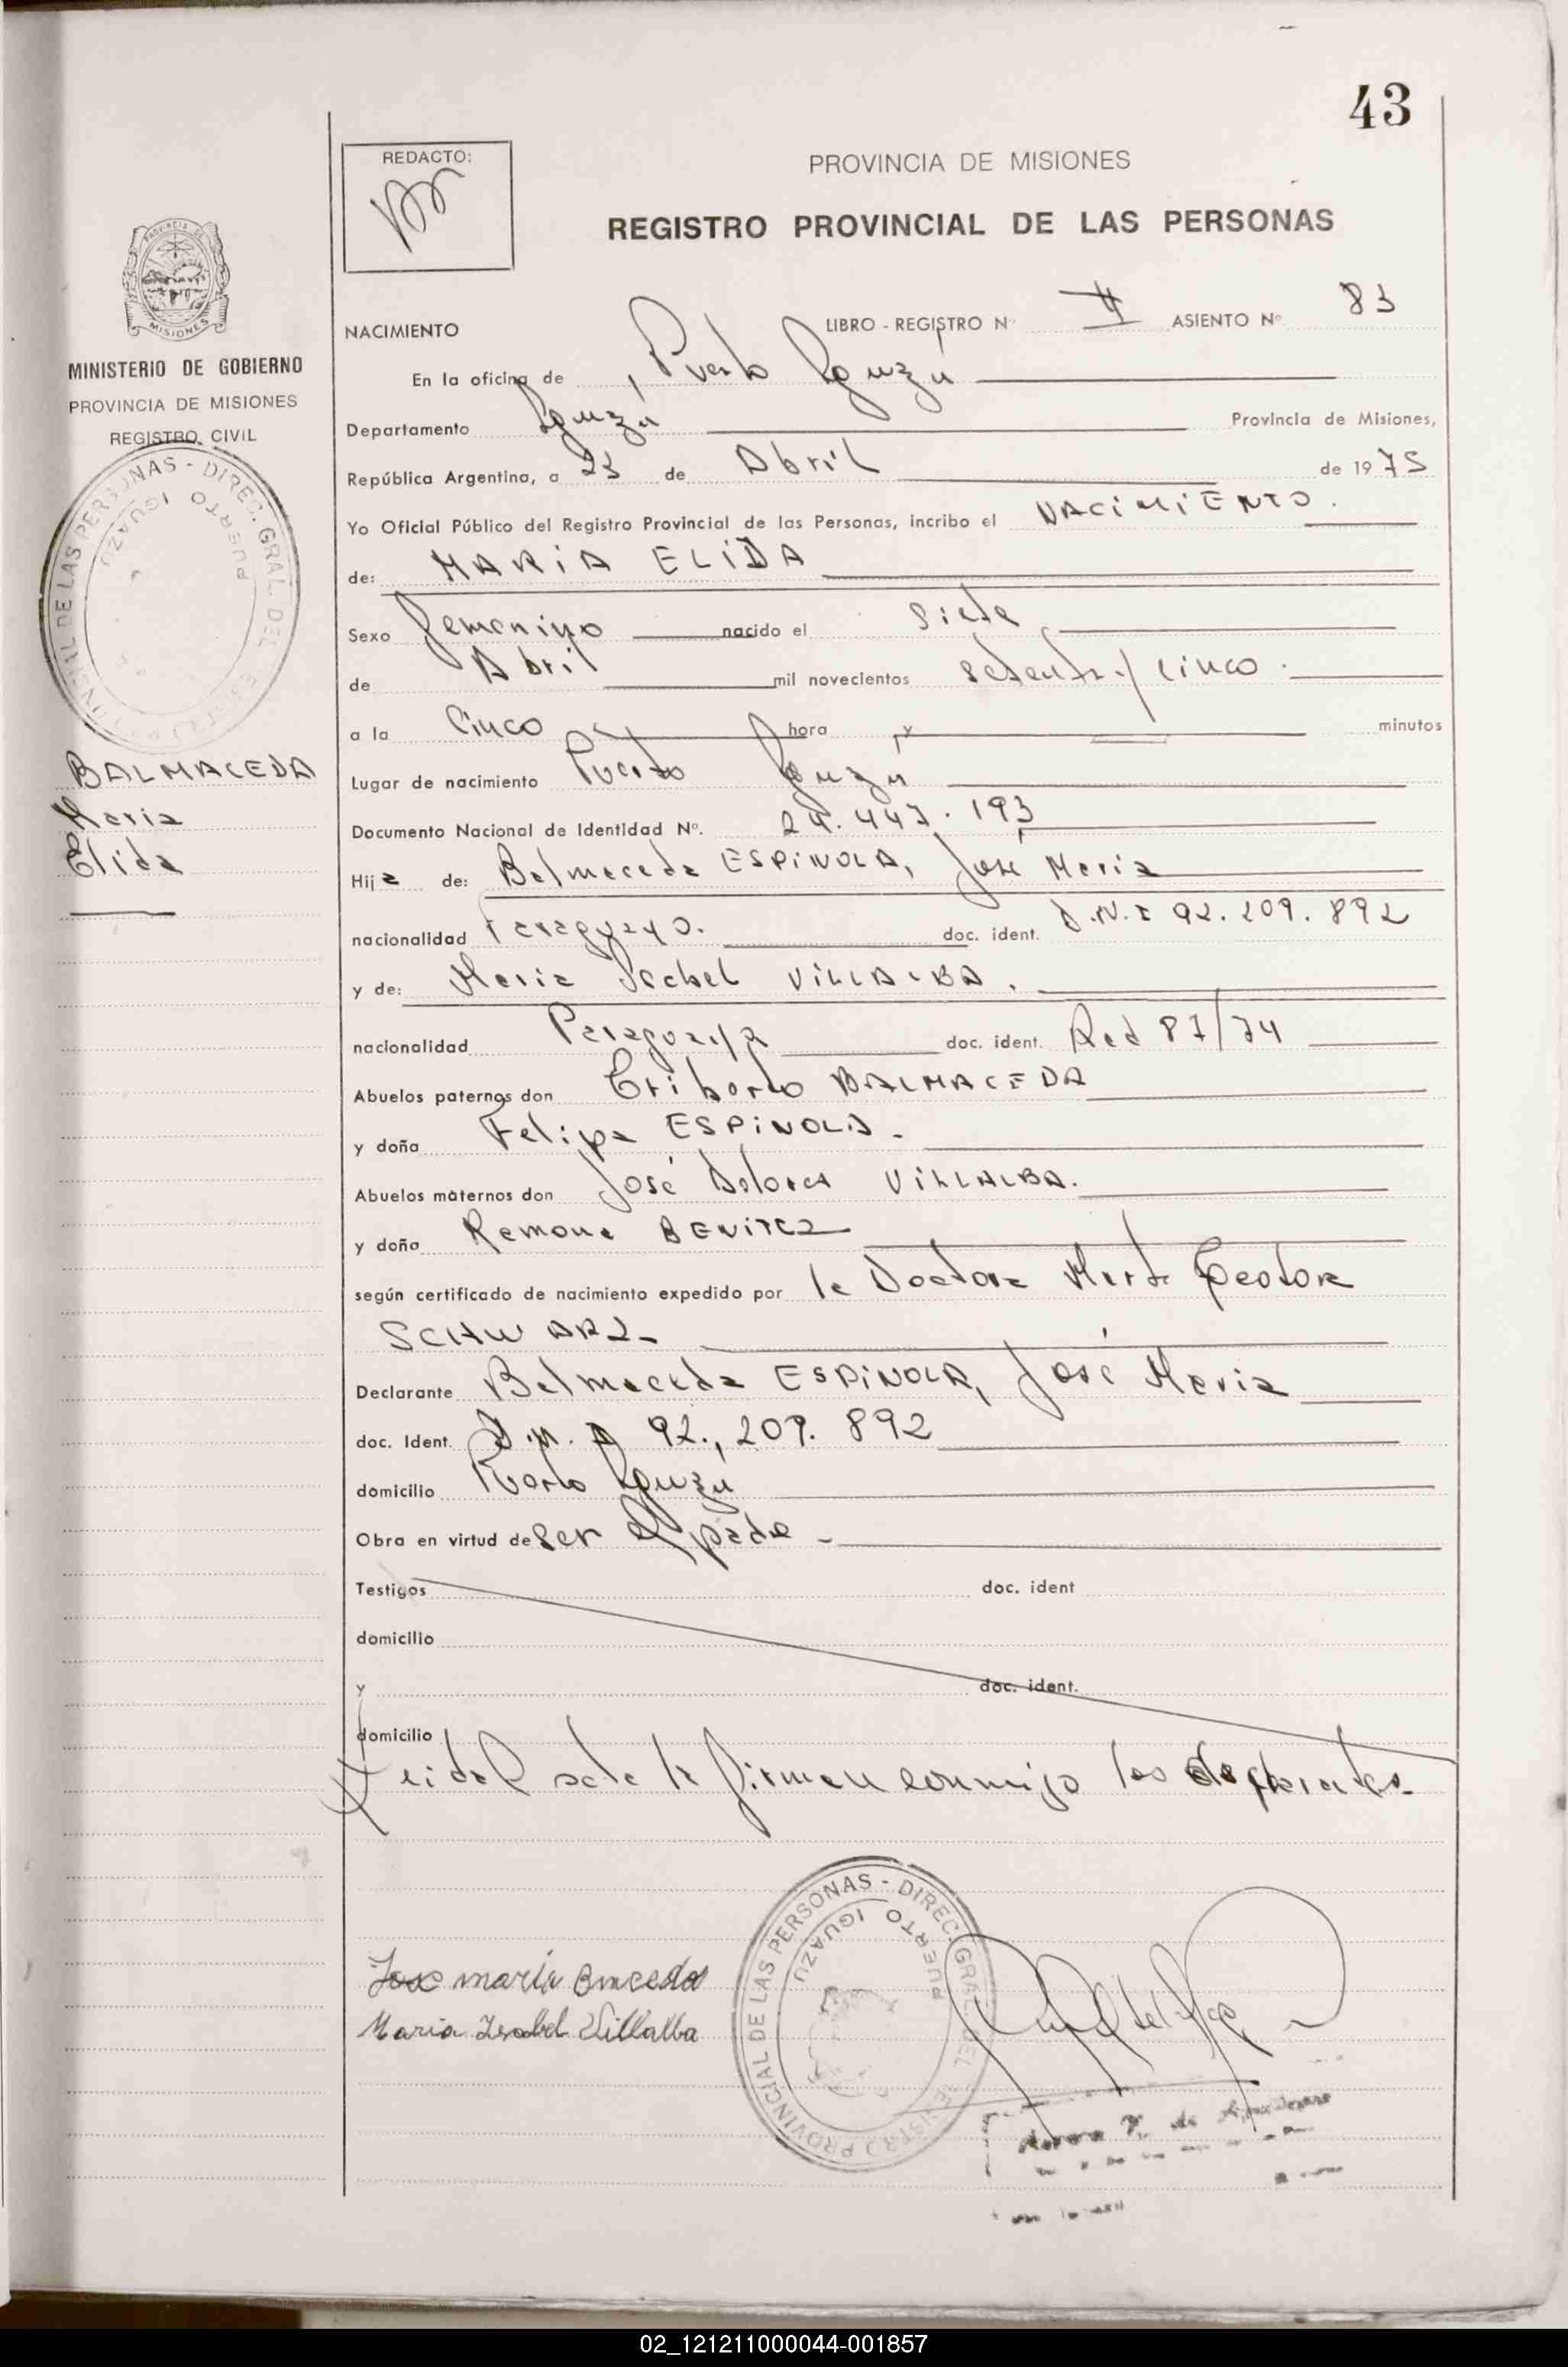 43
REDACTO:
PROVINCIA DE MISIONES
REGISTRO PROVINCIAL DE LAS PERSONAS
MISIONES
MINISTERIO DE GOBIERNO
PROVINCIA DE MISIONES
REGISTRO CIVIL
PUERTO IGUAZU
BALMACEDA
Maria
Elida
NACIMIENTO LIBRO - REGISTRO Nº II ASIENTO Nº 83
En la oficina de Puerto Iguazú
Departamento Iguazú Provincia de Misiones,
República Argentina, a 23 de Abril de 1975
Yo Oficial Público del Registro Provincial de las Personas, incribo el NACIMIENTO.
de: MARIA ELIDA
Sexo Femenino nacido el Siete
de Abril mil novecientos setenta y cinco.
a la Cinco hora y minutos
Lugar de nacimiento Puerto Iguazú
Documento Nacional de Identidad Nº. 24.447.193
Hija de: Balmaceda ESPINOLA, José Maria
nacionalidad Paraguayo. doc. ident. D.N.I 92.209.892
y de: Maria Isabel VILLALBA.
nacionalidad Paraguaya doc. ident. Rad 87/74
Abuelos paternos don BALMACEDA
y doña Felipa ESPINOLA.
Abuelos maternos don José Dolores VILLALBA.
y doña Ramona BENITEZ
según certificado de nacimiento expedido por la Doctora Marta Teodora
SCHWARZ
Declarante Balmaceda ESPINOLA, José Maria
doc. Ident. 92.209.892
domicilio Puerto Iguazú
Obra en virtud de ser el padre
Testigos doc. ident
domicilio
y doc. ident.
domicilio
Leida el acta la firman conmigo los
REGISTRO PROVINCIAL DE LAS PERSONAS - DIREC. GRAL. DEL
PUERTO IGUAZU
Jose maria
Maria Isabel Villalba
02_121211000044-001857